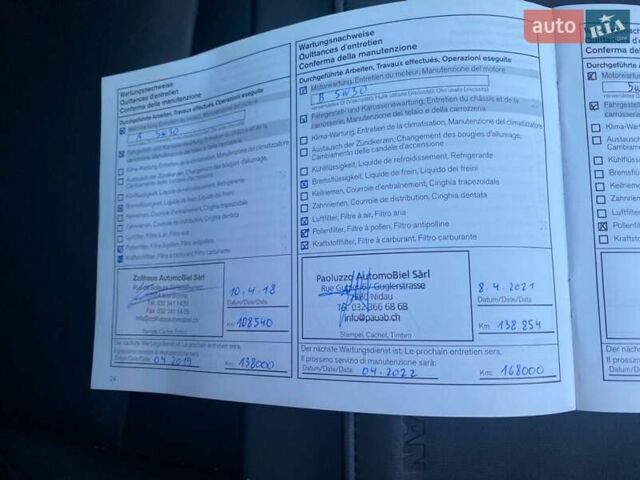 auto RIA
Wartungsnachweise
Quittances d'entretien
Conferma della manutenzione
Durchgeführte Arbeiten, Travaux effectués, Operazioni eseguite
5W30
Klima-Wartung, Entretien de la climatisation, Manutenzione del climatizzatore
Austausch der Zündkerzen, Changement des bougies d'allumage,
Cambiamento delle candele d'accensione
Kühlflüssigkeit, Liquide de refroidissement, Refrigerante
Bremsflüssigkeit, Liquide de frein, Liquido dei freini
Keilriemen, Courroie d'entraînement, Cinghia trapezoidale
Zahnriemen, Courroie de distribution, Cinghia dentata
Luftfilter, Filtre à air, Filtro aria
Pollenfilter, Filtre à pollen, Filtro antipolline
Kraftstofffilter, Filtre à carburant, Filtro carburante
Zollhaus AutomoBiel Sàrl
Tel. 032 341
Fax 032 341
Stempel, Cachet, Timbro
10.4.18
Datum/Date/Data
Km: 108540
Der nächste Wartungsdienst ist. Le prochain entretien sera,
Il prossimo servizio di manutenzione sarà:
Datum/Date/Data: 04.2019
Km: 138000
24
Wartungsnachweise
Quittances d'entretien
Conferma della manutenzione
Durchgeführte Arbeiten, Travaux effectués, Operazioni eseguite
Motorwartung, Entretien du moteur, Manutenzione del motore
B 5W30
verwendetes Öl (Viscosität), Huile utilisée (viscosité), Olio usato (viscosità)
Fahrgestell- und Karosseriewartung, Entretien du châssis et de la
carrosserie, Manutenzione del telaio e della carrozzeria
Klima-Wartung, Entretien de la climatisation, Manutenzione del climatizzatore
Austausch der Zündkerzen, Changement des bougies d'allumage,
Cambiamento delle candele d'accensione
Kühlflüssigkeit, Liquide de refroidissement, Refrigerante
Bremsflüssigkeit, Liquide de frein, Liquido dei freini
Keilriemen, Courroie d'entraînement, Cinghia trapezoidale
Zahnriemen, Courroie de distribution, Cinghia dentata
Luftfilter, Filtre à air, Filtro aria
Pollenfilter, Filtre à pollen, Filtro antipolline
Kraftstofffilter, Filtre à carburant, Filtro carburante
Paoluzzo AutomoBiel Sàrl
Rue Guglerstrasse
Nidau
Tel. 032 366 68 68
info@pauab.ch
Stempel, Cachet, Timbro
8.4.2021
Datum/Date/Data
Km: 138 854
Der nächste Wartungsdienst ist. Le prochain entretien sera,
Il prossimo servizio di manutenzione sarà:
Datum/Date/Data: 04.2022
Km: 168000
Wartungsnachweise
Quittances d'entretien
Conferma della
Durchgeführte Arbeiten
Motorwartung,
Fahrgestell
carrosserie,
Klima-Wart
Austausch
Cambiame
Kühlflüssig
Keilriemen
Zahnriem
Luftfilter
Pollenfilt
Kraftsto
Der nächste W
Il prossimo
Datum/Date